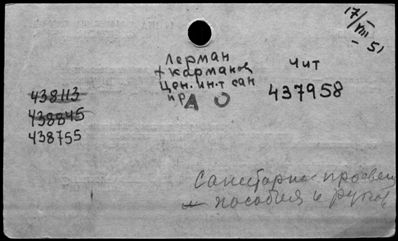 17/VIII - 51
Лерман
+ Карманов
Цен. ин-т сан
пр
А О
Чит
437958
438113
438845
438755
Санитарно просвет
пособия и